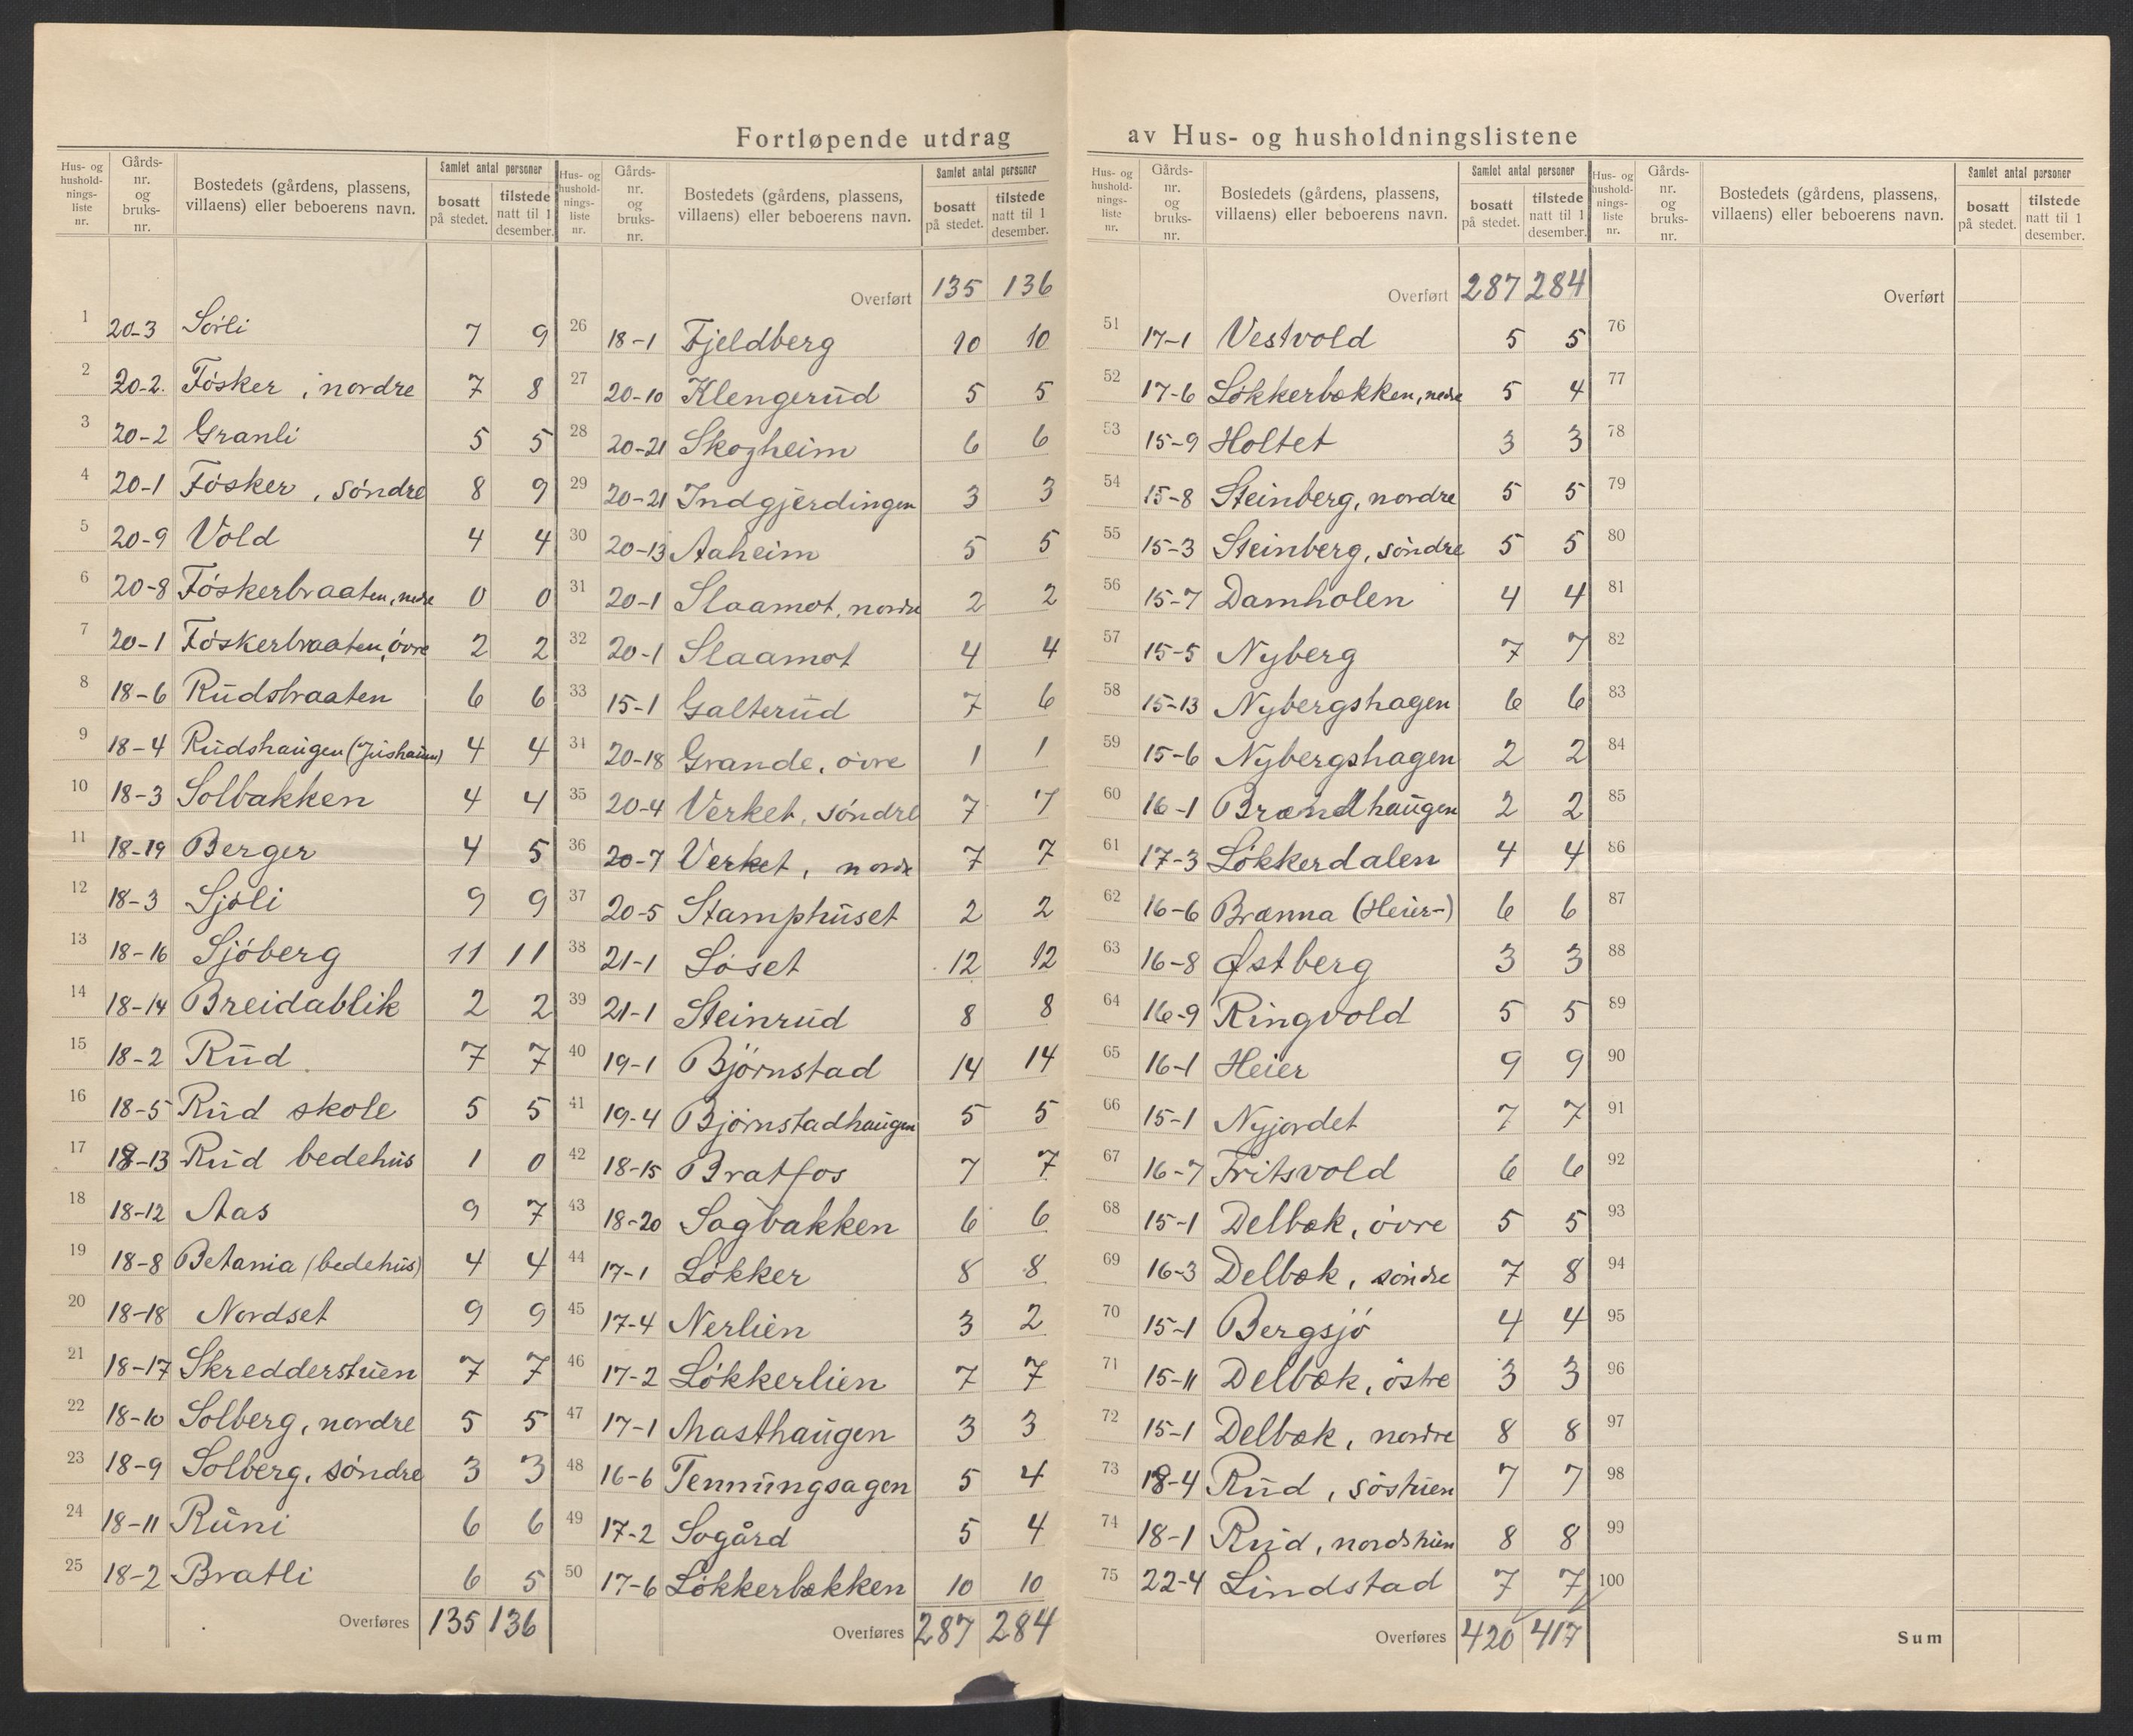 Fortløpende utdrag av Hus- og husholdningslistene
Hus- og husholdnings-liste nr. Gårds-nr. og bruks-nr. Bostedets (gårdens, plassens, villaens) eller beboerens navn. Samlet antal personer bosatt på stedet. tilstede natt til 1 desember.
1 20-3 Sørli 7 9
2 20-2. Føsker, nordre 7 8
3 20-2 Granli 5 5
4 20-1 Føsker, søndre 8 9
5 20-9 Vold 4 4
6 20-8 Føskerbraaten, nedre 0 0
7 20-1 Føskerbraaten, øvre 2 2
8 18-6 Rudsbraaten 6 6
9 18-4 Rudshaugen 4 4
10 18-3 Solbakken 4 4
11 18-19 Berger 4 5
12 18-3 Sjøli 9 9
13 18-16 Sjøberg 11 11
14 18-14 Breidablik 2 2
15 18-2 Rud 7 7
16 18-5 Rud skole 5 5
17 18-13 Rud bedehus 1 0
18 18-12 Aas 9 7
19 18-8 Betania (bedehus) 4 4
20 18-18 Nordset 9 9
21 18-17 Skredderstuen 7 7
22 18-10 Solberg, nordre 5 5
23 18-9 Solberg, søndre 3 3
24 18-11 Runi 6 6
25 18-2 Bratli 6 5
Overføres 135 136
Hus- og husholdnings-liste nr. Gårds-nr. og bruks-nr. Bostedets (gårdens, plassens, villaens) eller beboerens navn. Samlet antal personer bosatt på stedet. tilstede natt til 1 desember.
Overført 135 136
26 18-1 Fjeldberg 10 10
27 20-10 Klengerud 5 5
28 20-21 Skogheim 6 6
29 20-21 Indgjerdingen 3 3
30 20-13 Aaheim 5 5
31 20-1 Slaamot, nordre 2 2
32 20-1 Slaamot 4 4
33 15-1 Galterud 7 6
34 20-18 Grande, øvre 1 1
35 20-4 Verket, søndre 7 7
36 20-7 Verket, nordre 7 7
37 20-5 Stamphuset 2 2
38 21-1 Løset 12 12
39 21-1 Steinrud 8 8
40 19-1 Bjørnstad 14 14
41 19-4 Bjørnstadhaugen 5 5
42 18-15 Bratfos 7 7
43 18-20 Sagbakken 6 6
44 17-1 Løkker 8 8
45 17-4 Nerlien 3 2
46 17-2 Løkkerlien 7 7
47 17-1 Masthaugen 3 3
48 16-6 Tennungsagen 5 4
49 17-2 Sogård 5 4
50 17-6 Løkkerbækken 10 10
Overføres 287 284
Hus- og hushold-nings-liste nr. Gårds-nr. og bruks-nr. Bostedets (gårdens, plassens, villaens) eller beboerens navn. Samlet antal personer bosatt på stedet. tilstede natt til 1 desember.
Overført 287 284
51 17-1 Vestvold 5 5
52 17-6 Løkkerbækken, nedre 5 4
53 15-9 Holtet 3 3
54 15-8 Steinberg, nordre 5 5
55 15-3 Steinberg, søndre 5 5
56 15-7 Damholen 4 4
57 15-5 Nyberg 7 7
58 15-13 Nybergshagen 6 6
59 15-6 Nybergshagen 2 2
60 16-1 Brændhaugen 2 2
61 17-3 Løkkerdalen 4 4
62 16-6 Brænna (Heier-) 6 6
63 16-8 Østberg 3 3
64 16-9 Ringvold 5 5
65 16-1 Heier 9 9
66 15-1 Nyjordet 7 7
67 16-7 Fritsvold 6 6
68 15-1 Delbæk, øvre 5 5
69 16-3 Delbæk, søndre 7 8
70 15-1 Bergsjø 4 4
71 15-11 Delbæk, østre 3 3
72 15-1 Delbæk, nordre 8 8
73 18-4 Rud, søstuen 7 7
74 18-1 Rud, nordstuen 8 8
75 22-4 Lindstad 7 7
Overføres 420 417
Hus- og hushold-nings-liste nr. Gårds-nr. og bruks-nr. Bostedets (gårdens, plassens, villaens) eller beboerens navn. Samlet antal personer bosatt på stedet. tilstede natt til 1 desember.
Overført
76
77
78
79
80
81
82
83
84
85
86
87
88
89
90
91
92
93
94
95
96
97
98
99
100
Sum